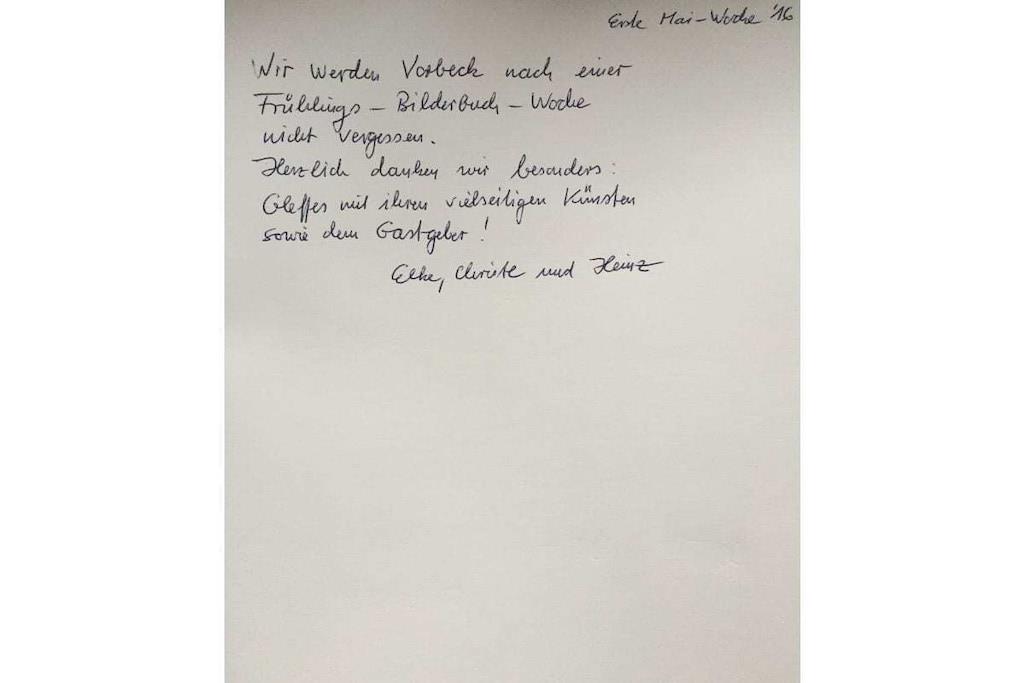 Erste Mai-Woche '16
Wir werden Vorbeck nach einer
Frühlings – Bilderbuch – Woche
nicht vergessen.
Herzlich danken wir besonders:
mit ihren vielseitigen Künsten
sowie dem Gastgeber!
Elke, Christl und Heinz